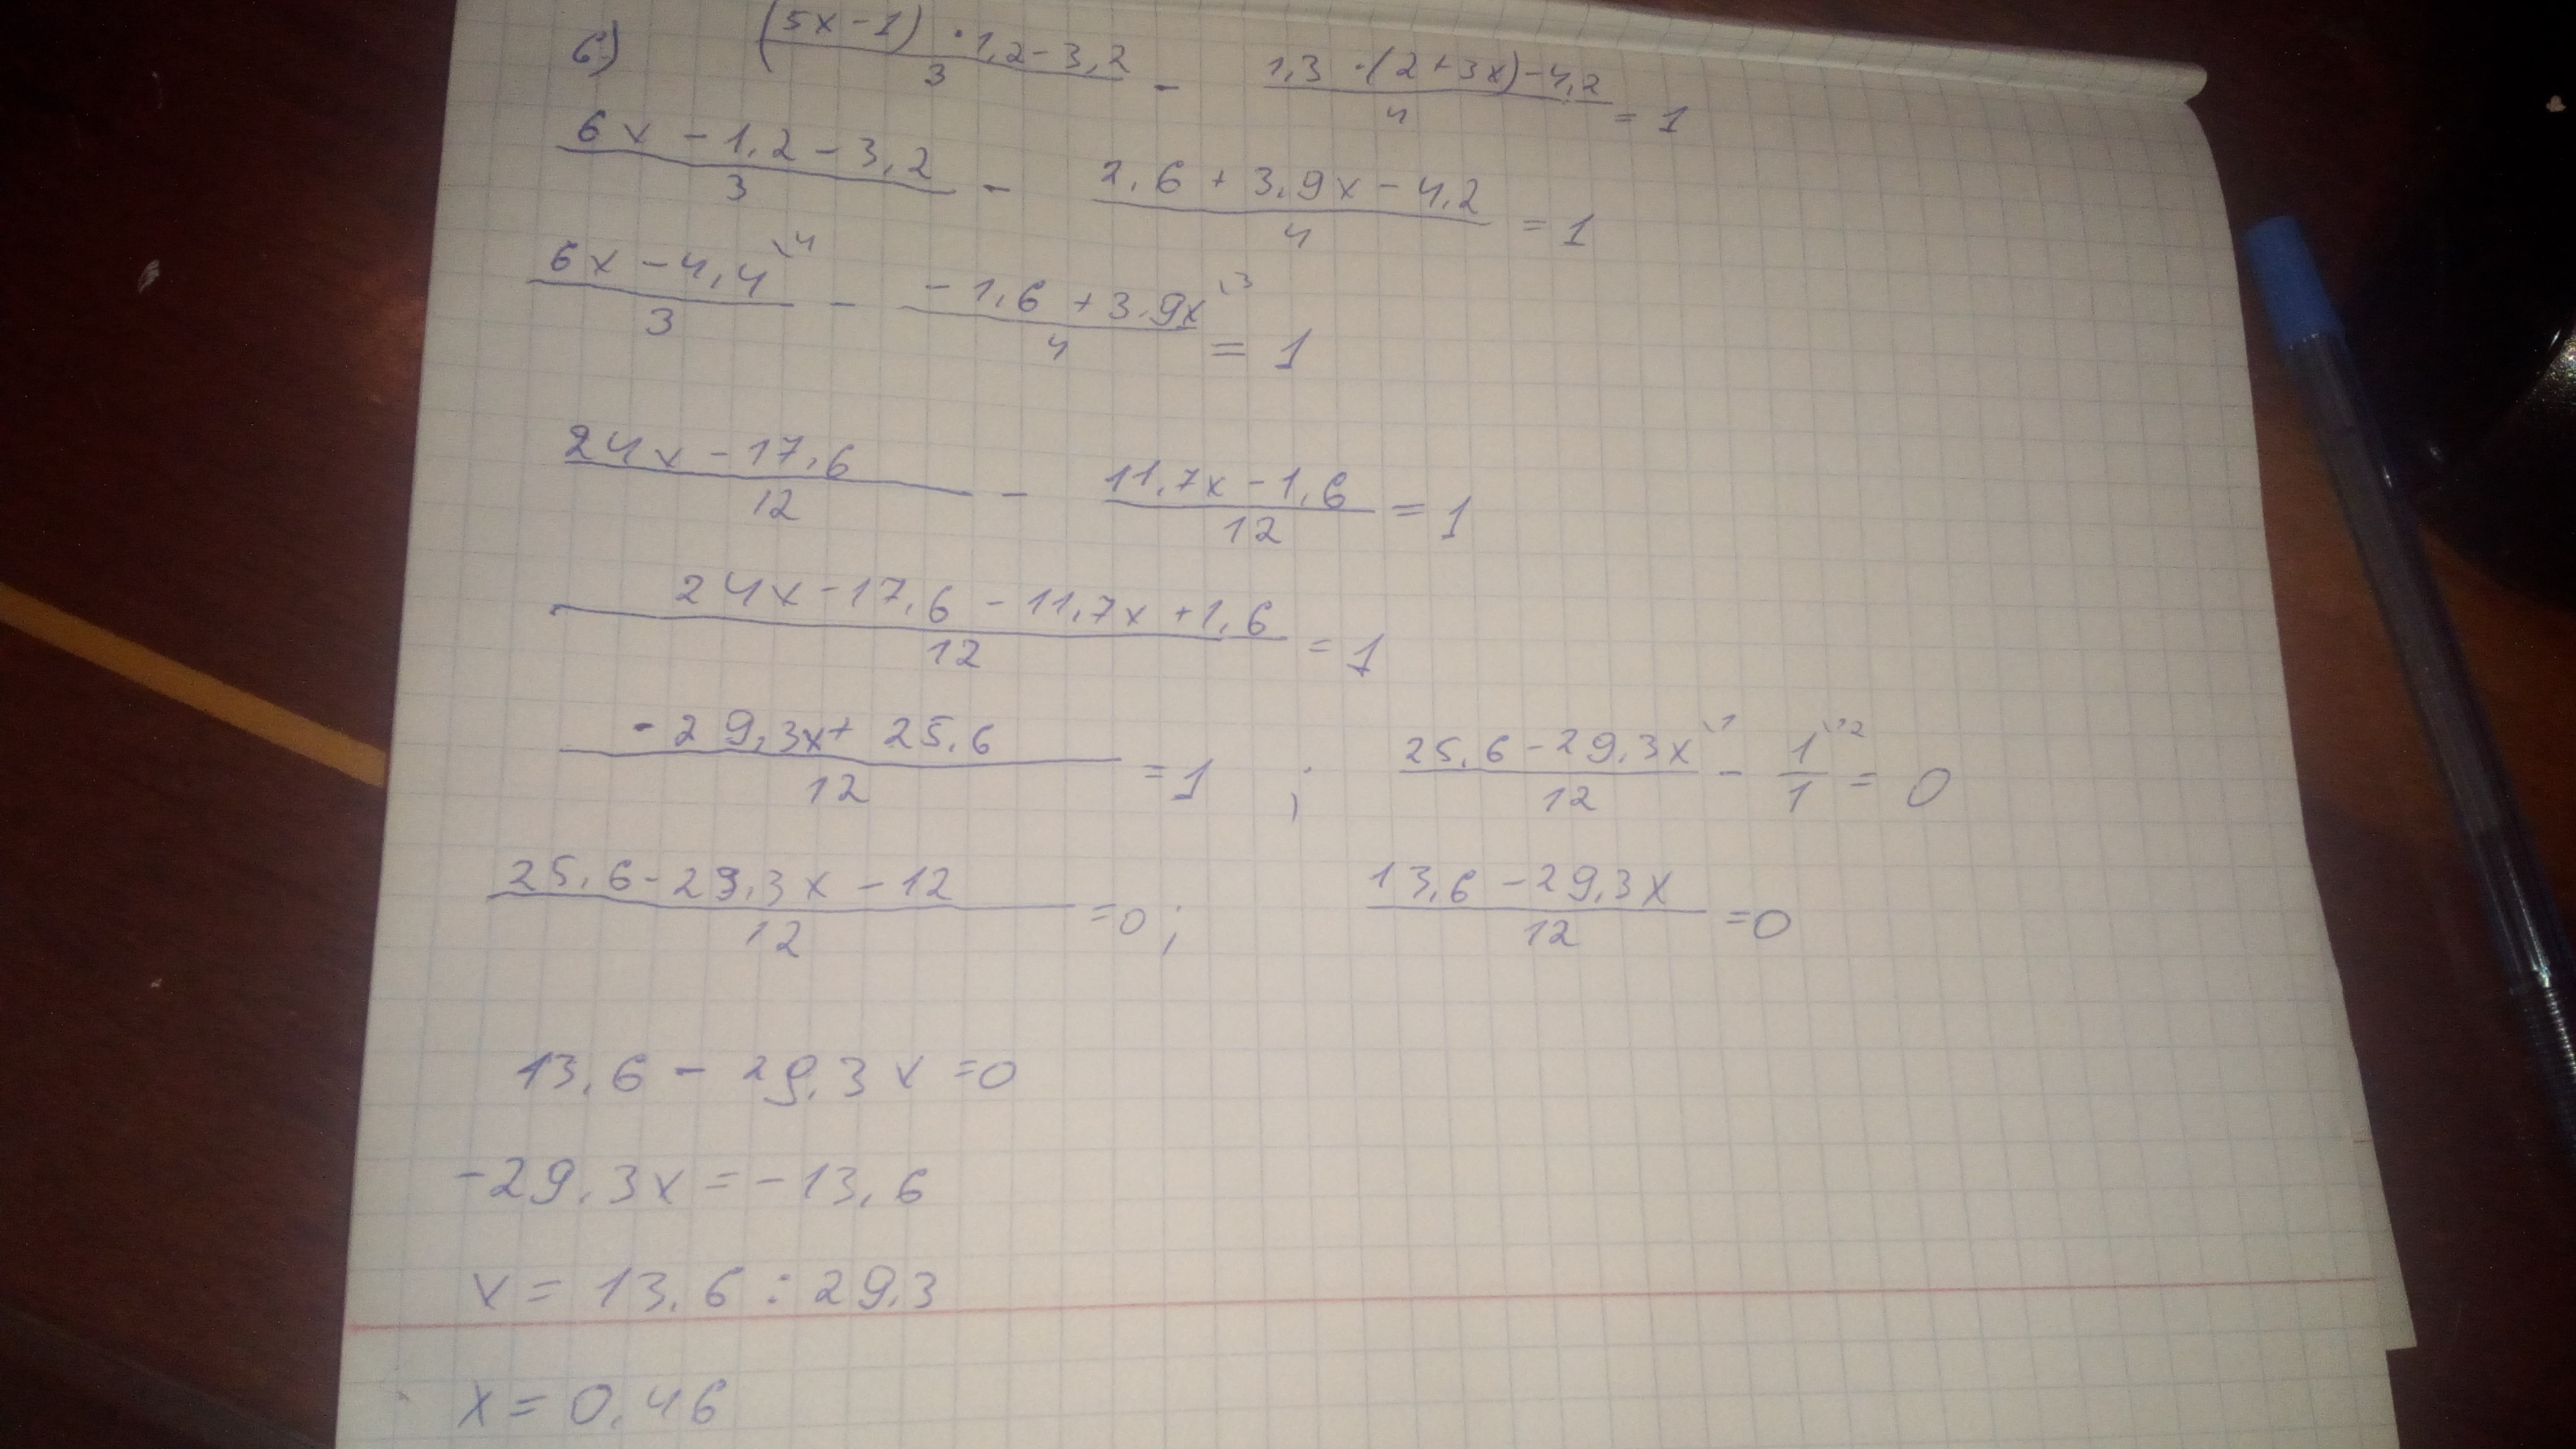 б) ((5x-1)·1,2-3,2)/3 - (1,3·(2+3x)-4,2)/4 = 1
(6x-1,2-3,2)/3 - (2,6+3,9x-4,2)/4 = 1
(6x-4,4)/3 \4 - (-1,6+3,9x)/4 \3 = 1
(24x-17,6)/12 - (11,7x-1,6)/12 = 1
(24x-17,6-11,7x+1,6)/12 = 1
(-29,3x+25,6)/12 = 1 ; (25,6-29,3x)/12 \1 - 1/1 \12 = 0
(25,6-29,3x-12)/12 = 0; (13,6-29,3x)/12 = 0
13,6-29,3x=0
-29,3x=-13,6
x=13,6:29,3
x=0,46